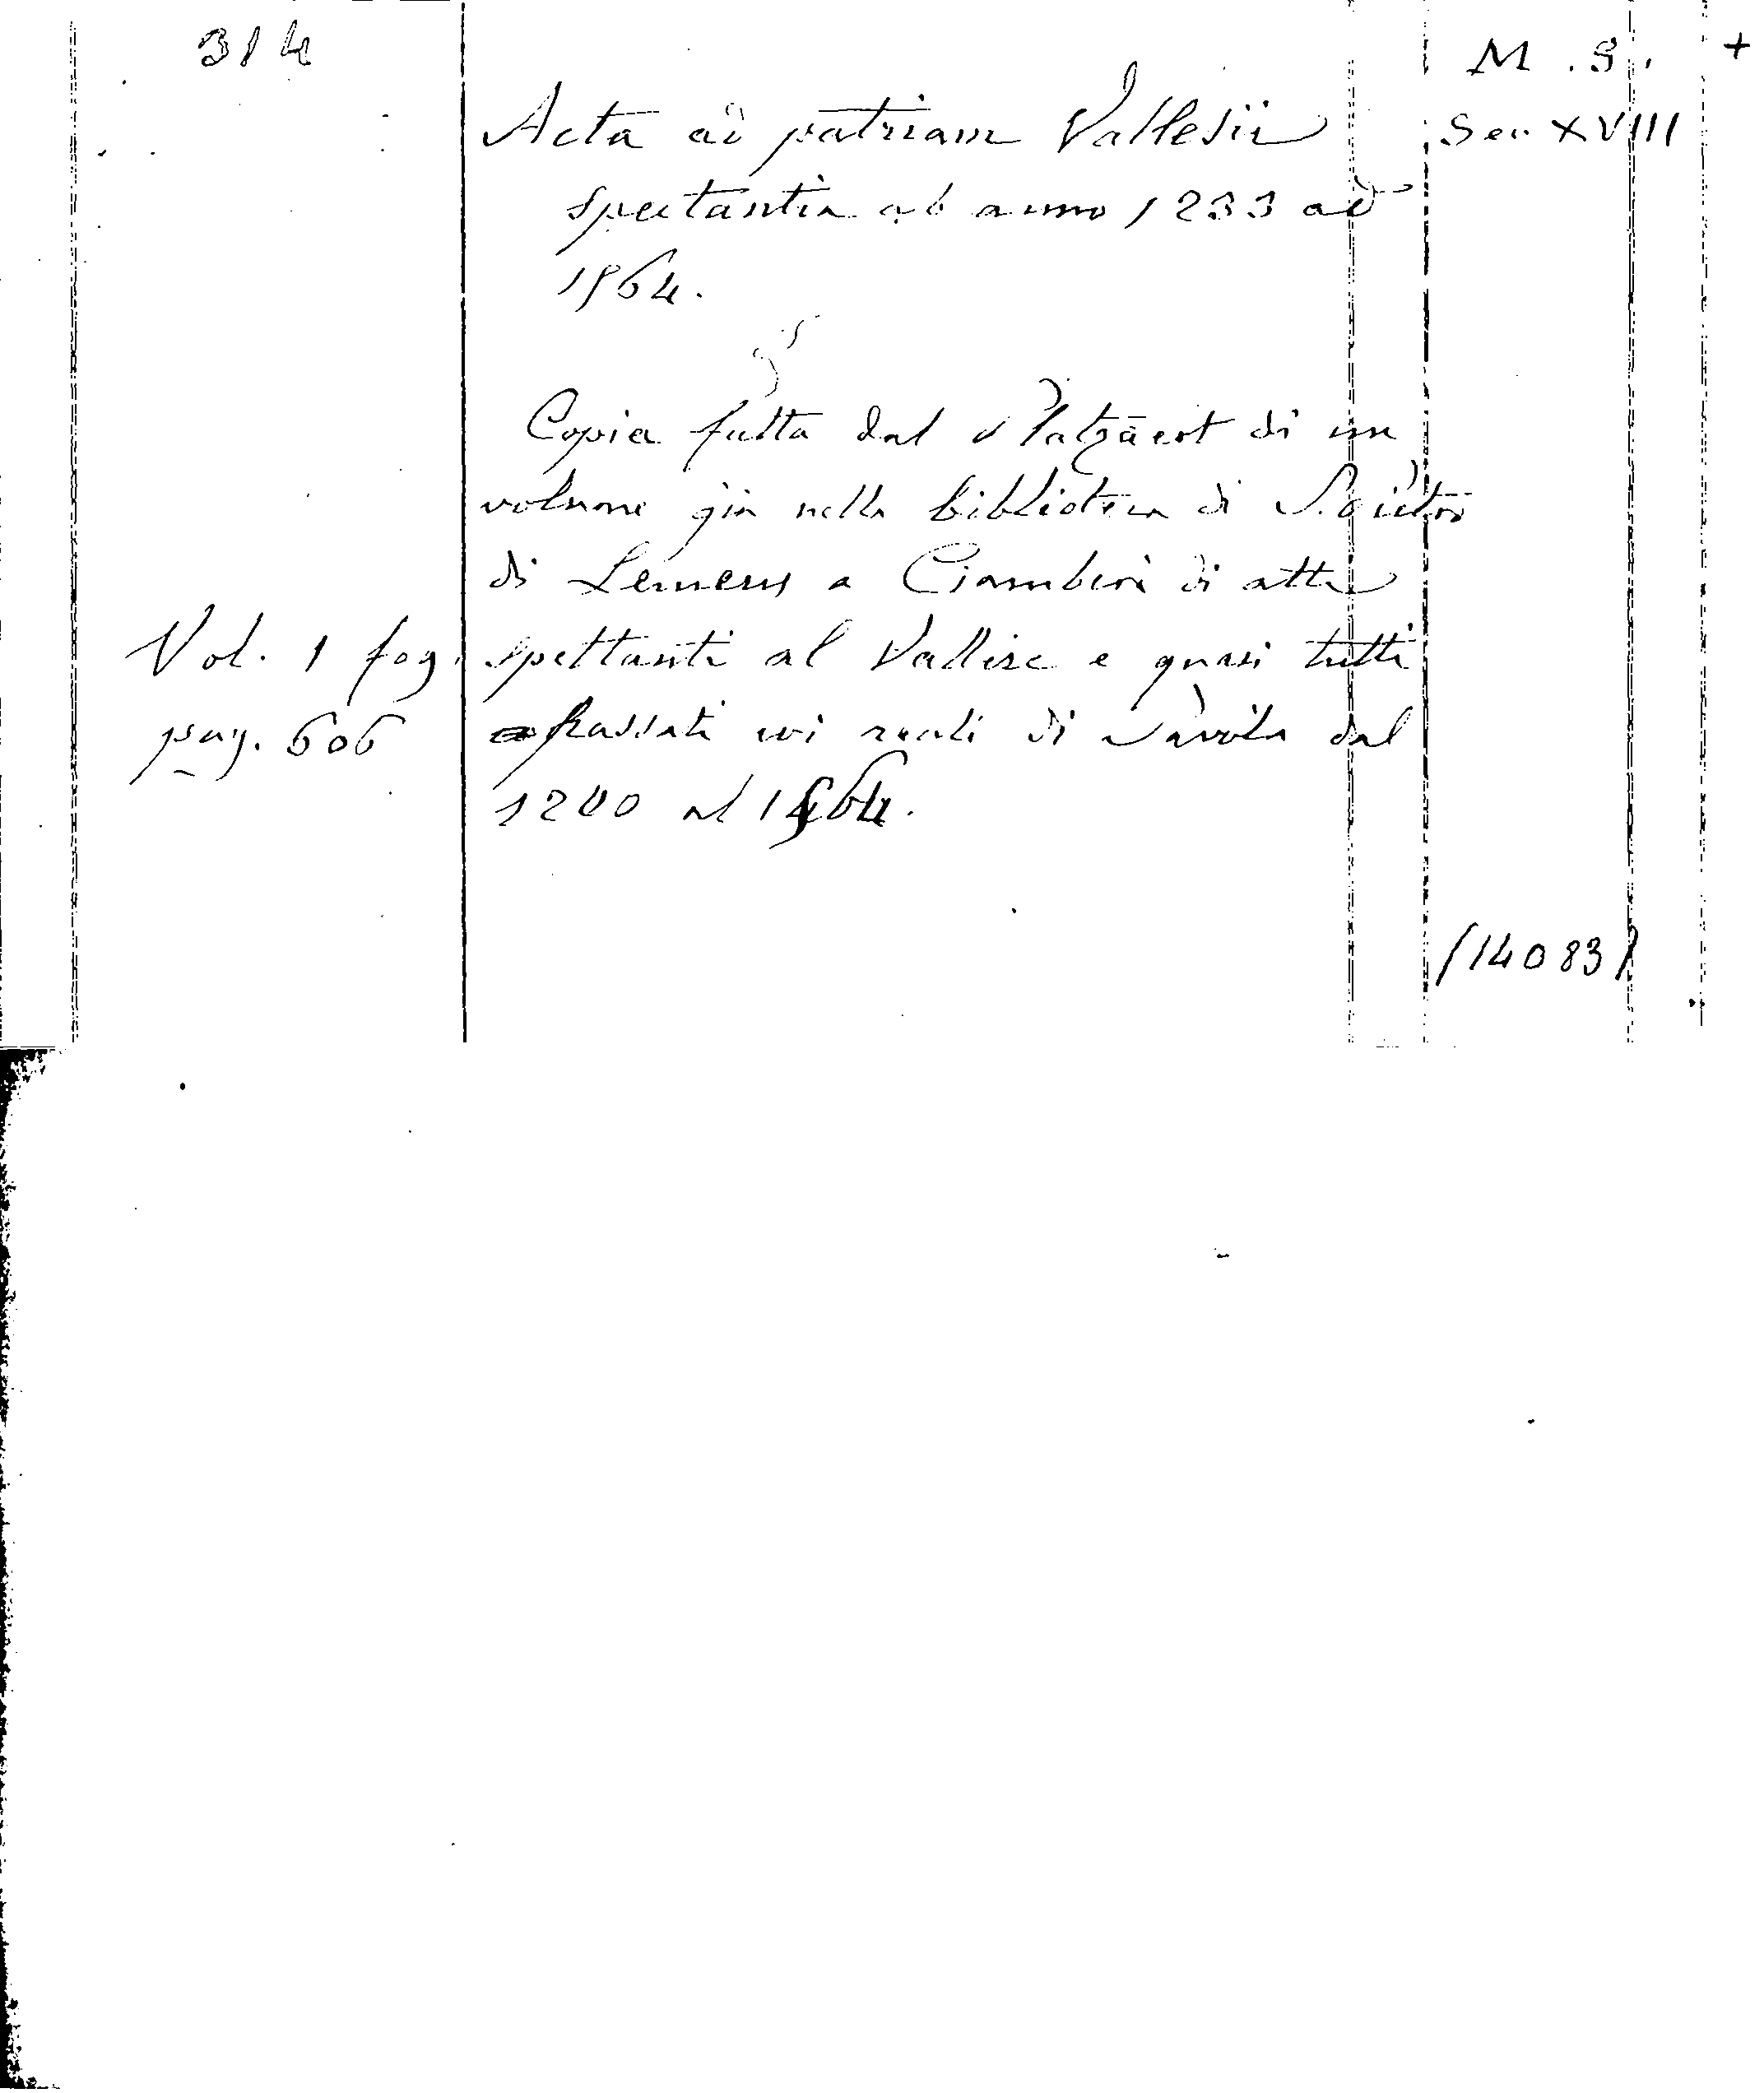 314
M . S . +
Acta ad patriam Vallesii
Sec. XVIII
spectantia ab anno 1233 ad
1564.
Copia fatta dal Platzäert di un
volume già nella biblioteca di S. Pietro
di Lemens a Ciamberì di atti
Vol. 1 fog.
spettanti al Vallese e quasi tutti
pag. 606
passati coi reali di Savoia dal
1200 al 1564.
(14083)